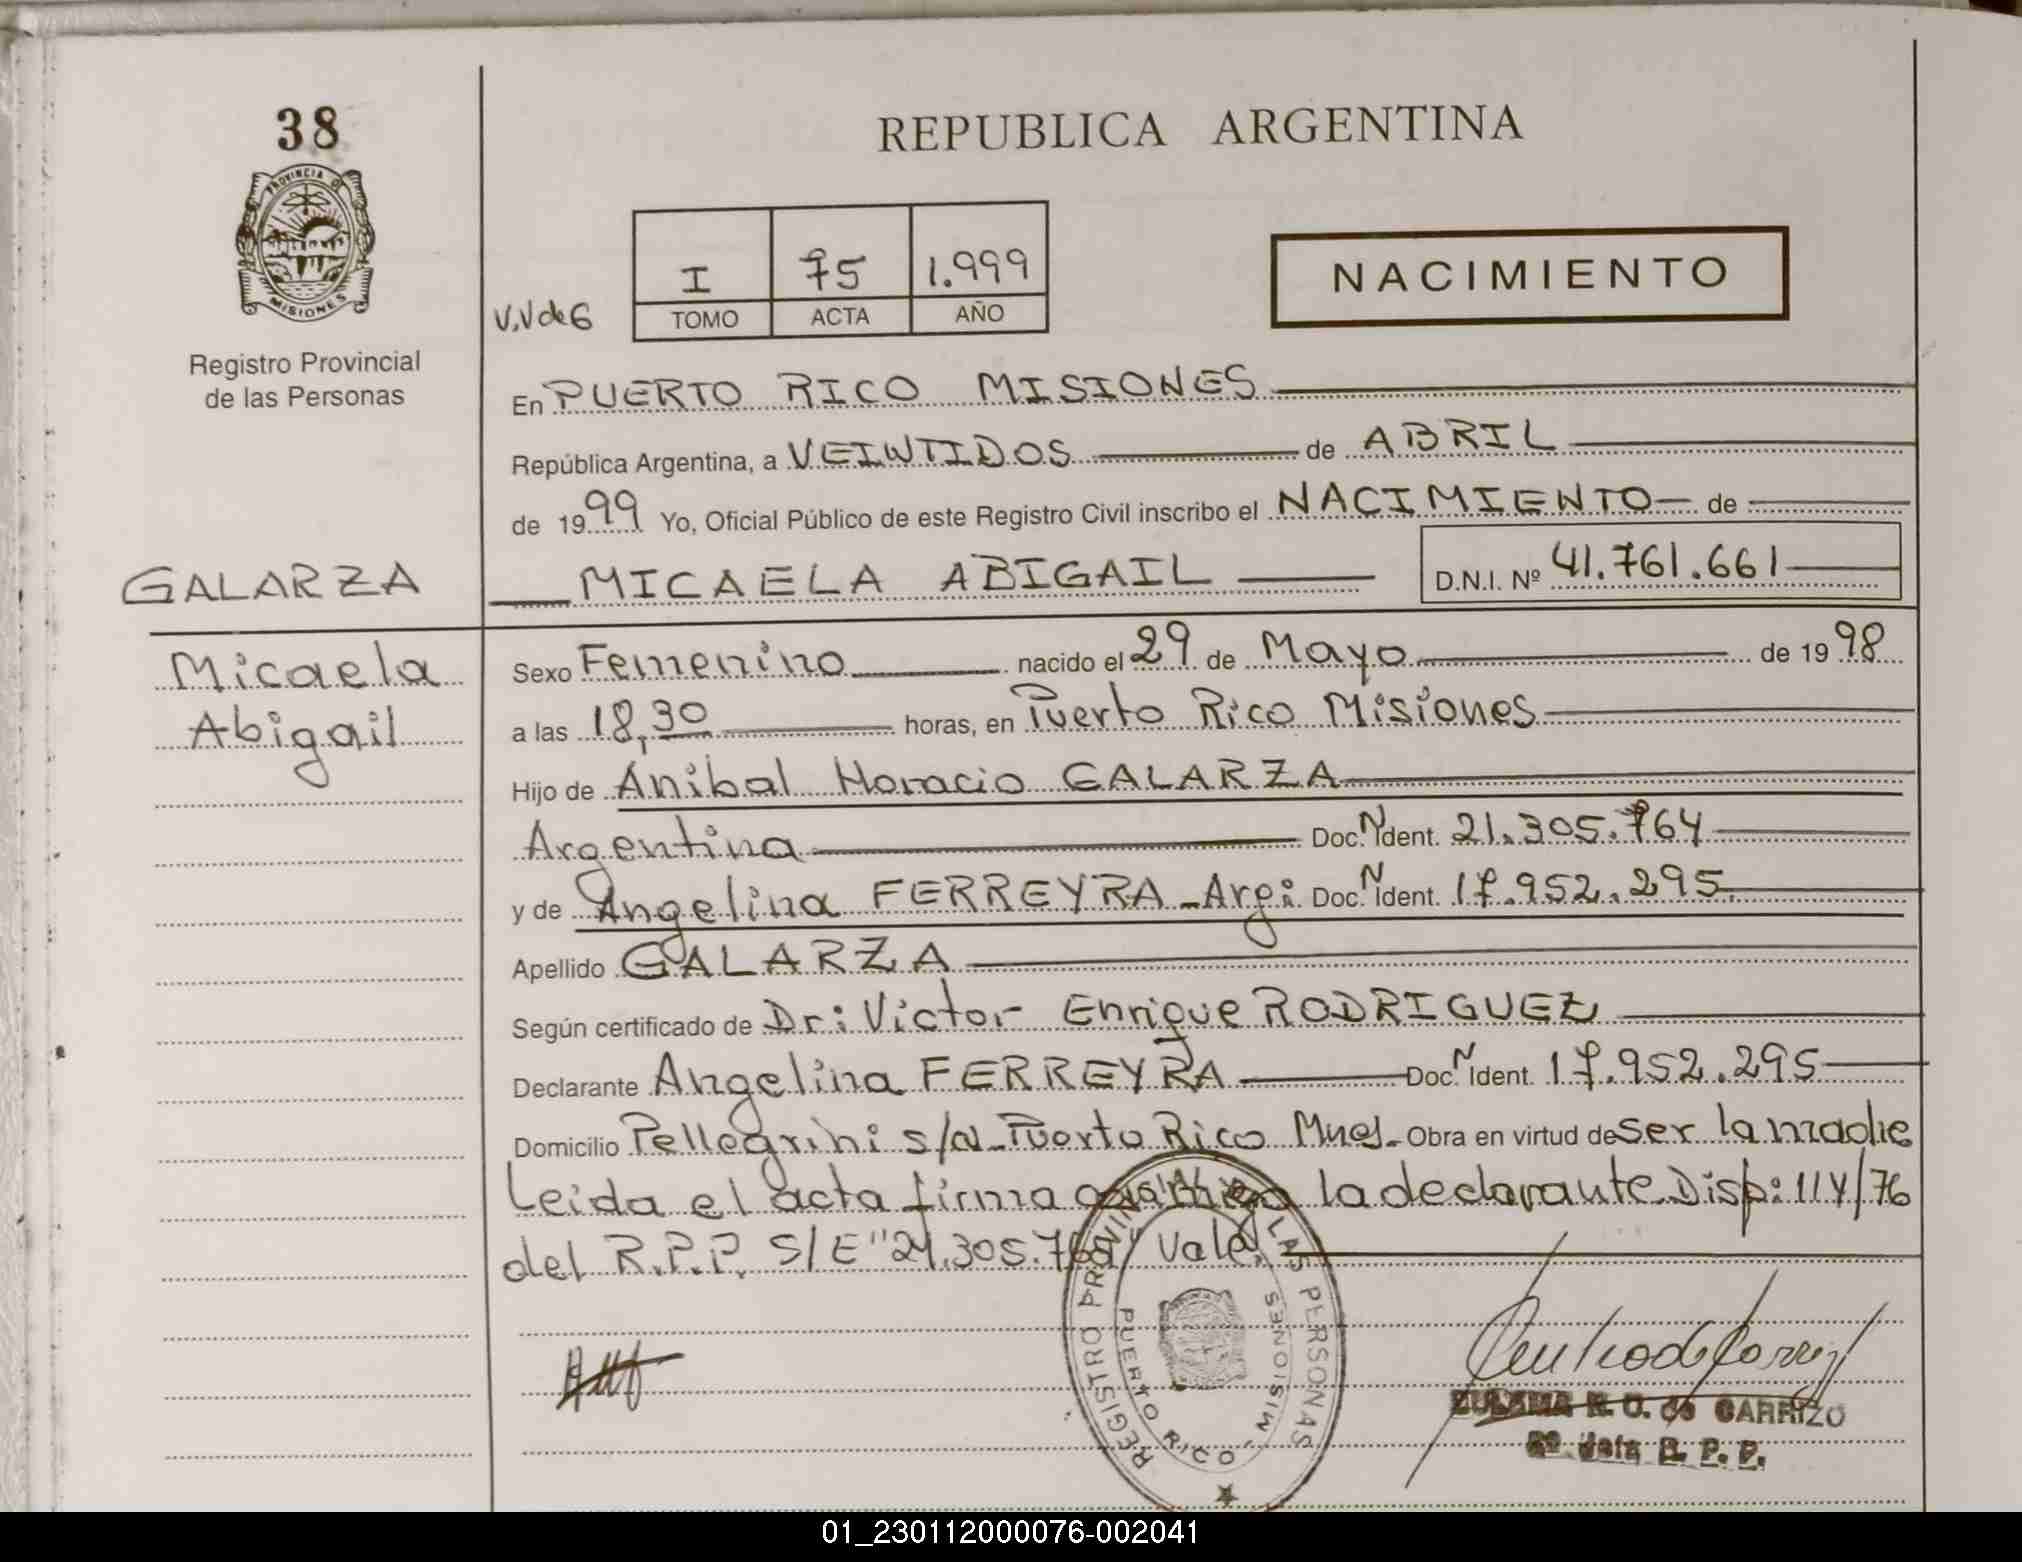 38
PROVINCIA DE
MISIONES
Registro Provincial
de las Personas
GALARZA
Micaela
Abigail
REPUBLICA ARGENTINA
I 75 1.999
TOMO ACTA AÑO
NACIMIENTO
En PUERTO RICO MISIONES
República Argentina, a VEINTIDOS de ABRIL
de 1999 Yo, Oficial Público de este Registro Civil inscribo el NACIMIENTO de
MICAELA ABIGAIL D.N.I. Nº 41.761.661
Sexo Femenino nacido el 29 de Mayo de 1998
a las 18,30 horas, en Puerto Rico Misiones
Hijo de Anibal Horacio GALARZA
Argentina Doc. N Ident. 21.305.764
y de Angelina FERREYRA - Arg: Doc. N Ident. 17.952.295
Apellido GALARZA
Según certificado de Dr: Victor Enrique RODRIGUEZ
Declarante Angelina FERREYRA Doc. N Ident. 17.952.295
Domicilio Pellegrini s/n - Puerto Rico Mnes. Obra en virtud de ser la madre
Leida el acta firma conmigo la declarante Disp: 114/76
del R.P.P. S/E "21.305.764" Vale.
REGISTRO PROVINCIAL DE LAS PERSONAS
PUERTO RICO - MISIONES
ZULEMA R. O. de CARRIZO
R. P. P.
01_230112000076-002041